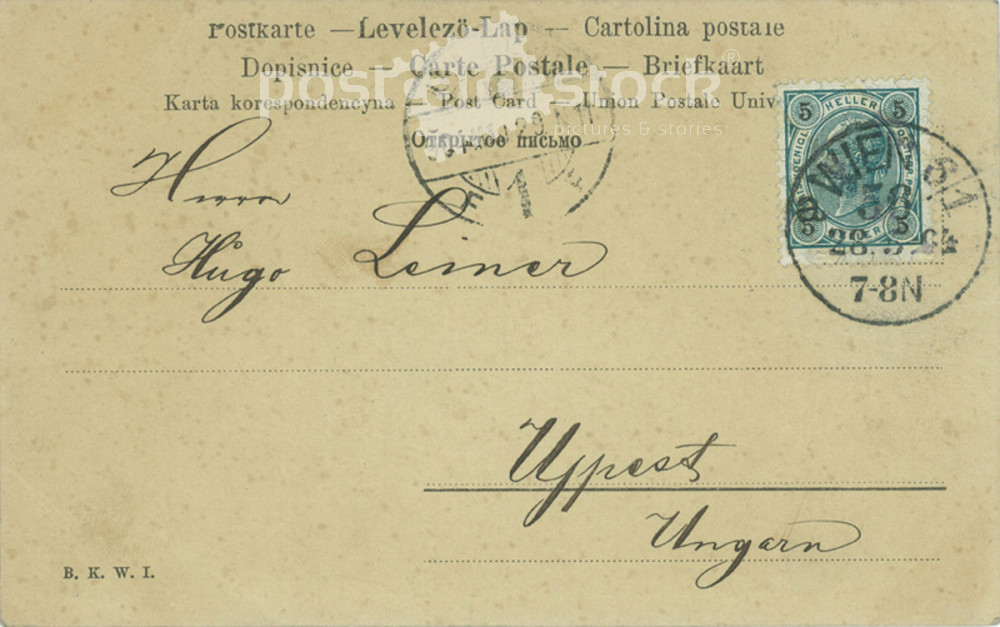 Postkarte — Levelező-Lap — Cartolina postale
Dopisnice — Carte Postale — Briefkaart
Karta korespondencyna — Post Card — Union Postale
Открытое письмо
postcardstock®
pictures & stories
5 HELLER 5
5 5
WIEN 6/1
7-8N
1
Herrn
Hugo Leiner
Ujpest
Ungarn
B. K. W. I.